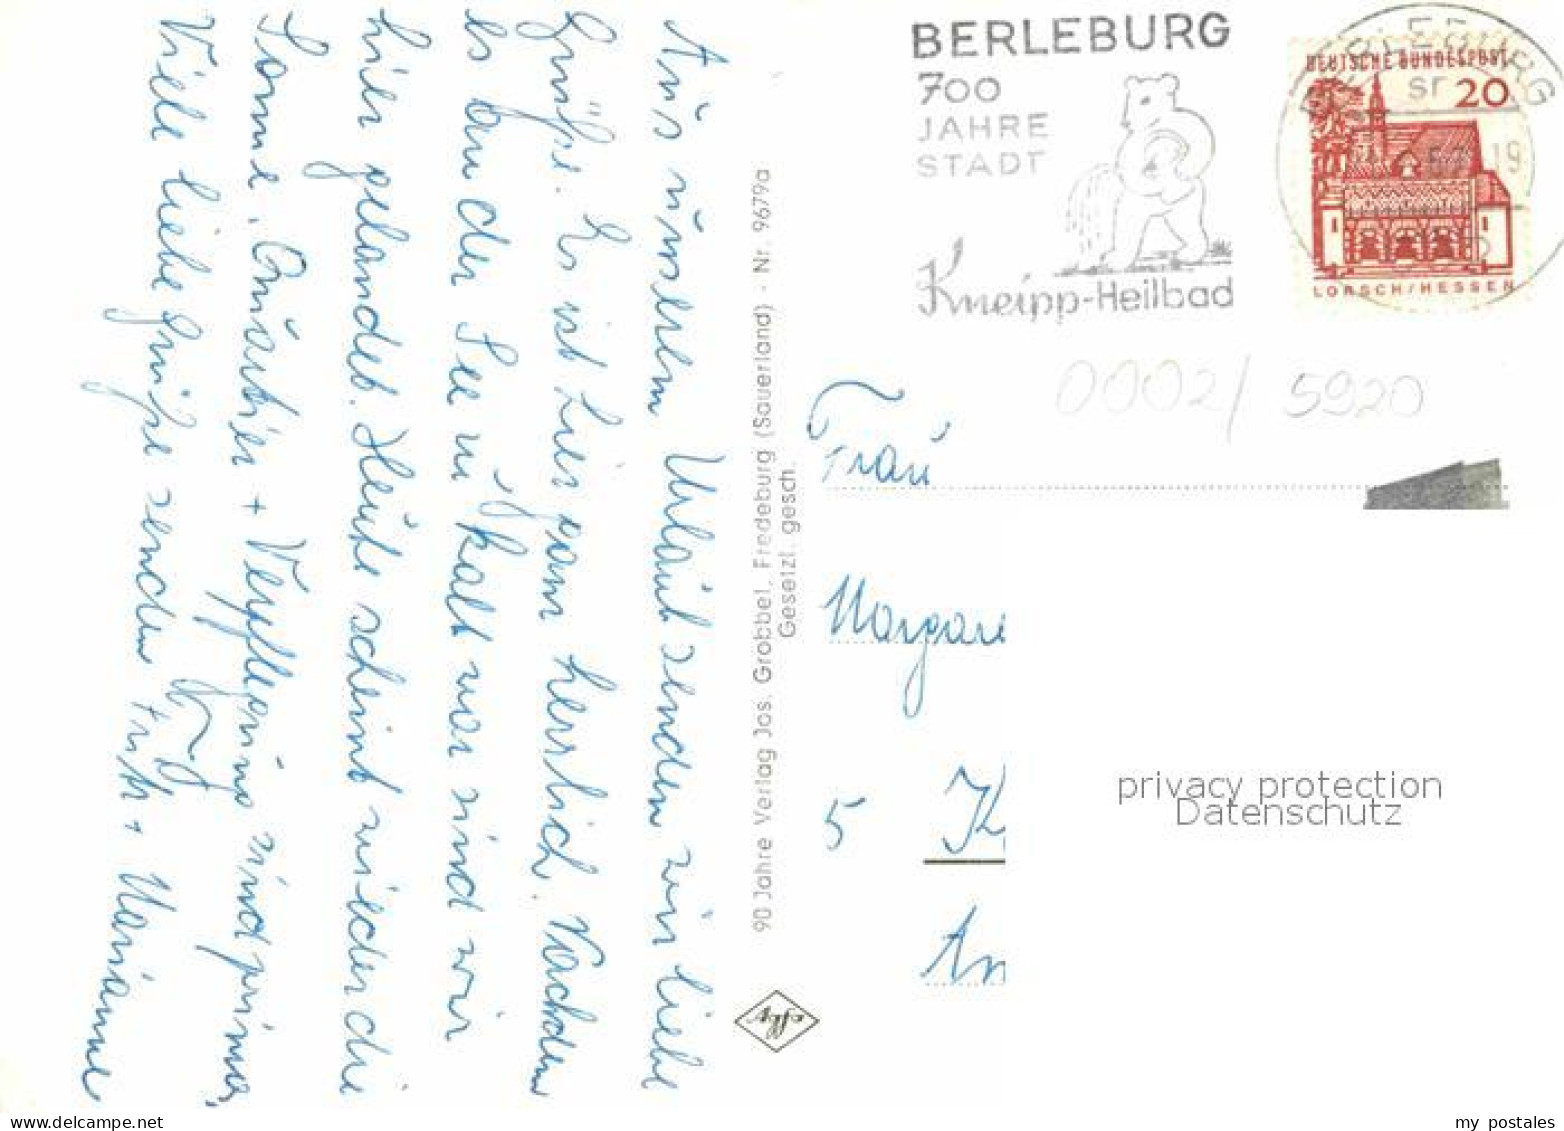 Aus unserem Urlaub senden wir liebe
Grüße. Es ist hier ganz herrlich. Nachdem
es an der See zu kalt war sind wir
hier gelandet. Heute scheint wieder die
Sonne. Quartier + Verpflegung sind prima.
Viele liebe Grüße senden Fritz + Marianne
90 Jahre Verlag Jos. Grobbel, Fredeburg (Sauerland) - Nr. 9679a
Gesetzl. gesch.
BERLEBURG
700
JAHRE
STADT
Kneipp-Heilbad
DEUTSCHE BUNDESPOST
20
LORSCH/HESSEN
BERLEBURG
0002/5920
Frau
Margare
5 K
An
privacy protection
Datenschutz
my postales